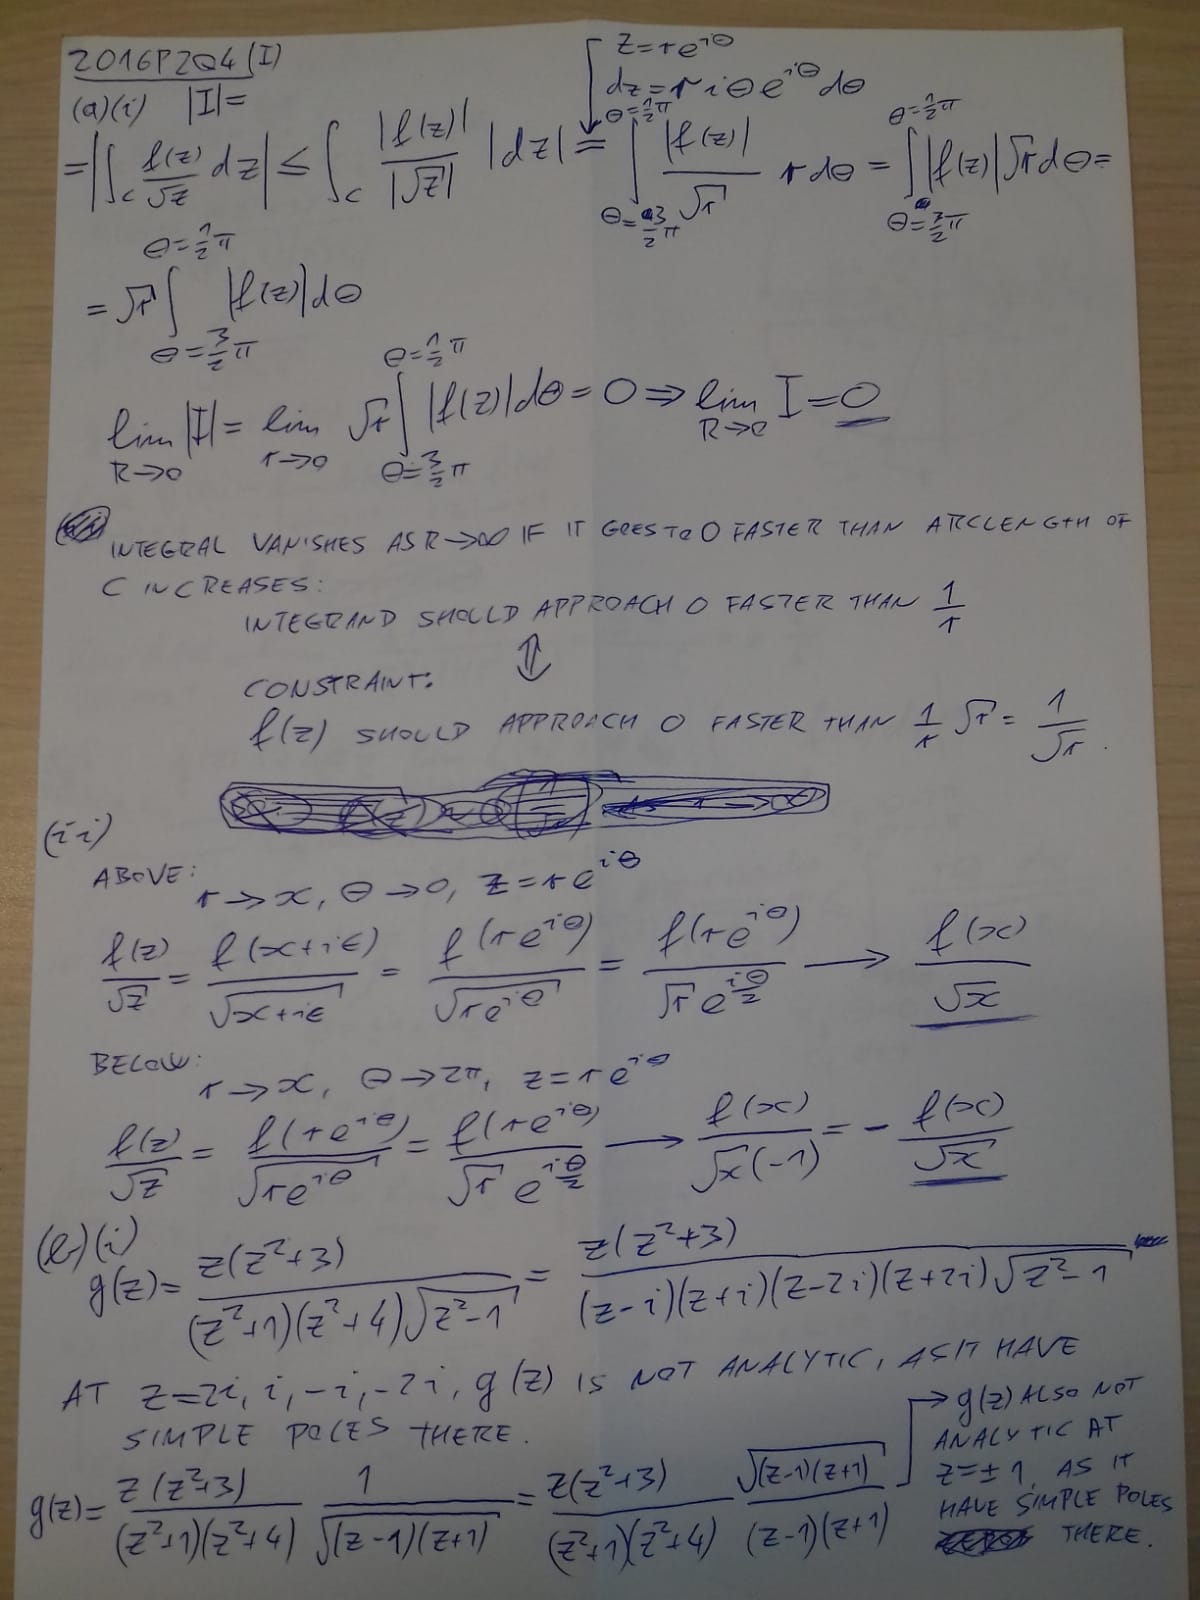 2016P2Q4 (I)
z=re^{iθ}
dz=r iθe^{iθ}dθ
(a)(i) |I|=
=|∫_C f(z)/√z dz| ≤ ∫_C |f(z)|/|√z| |dz| = ∫_{θ=3/2π}^{θ=1/2π} |f(z)|/√r r dθ = ∫_{θ=3/2π}^{θ=1/2π} |f(z)|√r dθ=
=√r ∫_{θ=3/2π}^{θ=1/2π} |f(z)|dθ
lim_{R→0} |I| = lim_{r→0} √r ∫_{θ=3/2π}^{θ=1/2π} |f(z)|dθ = 0 ⇒ lim_{R→0} I = 0
INTEGRAL VANISHES AS R→∞ IF IT GOES TO 0 FASTER THAN ARCLENGTH OF
C INCREASES:
INTEGRAND SHOULD APPROACH 0 FASTER THAN 1/r
⇕
CONSTRAINT:
f(z) SHOULD APPROACH 0 FASTER THAN 1/r √r = 1/√r.
(ii)
ABOVE:
r→x, θ→0, z=re^{iθ}
f(z)/√z = f(x+iϵ)/√(x+iϵ) = f(re^{iθ})/√(re^{iθ}) = f(re^{iθ})/(√r e^{iθ/2}) → f(x)/√x
BELOW:
r→x, θ→2π, z=re^{iθ}
f(z)/√z = f(re^{iθ})/√(re^{iθ}) = f(re^{iθ})/(√r e^{iθ/2}) → f(x)/(√x(-1)) = - f(x)/√x
(b)(i)
g(z)= z(z²+3)/((z²+1)(z²+4)√(z²-1)) = z(z²+3)/((z-i)(z+i)(z-2i)(z+2i)√(z²-1))
AT z=2i, i, -i, -2i, g(z) IS NOT ANALYTIC, AS IT HAVE
SIMPLE POLES THERE.
g(z)= z(z²+3)/((z²+1)(z²+4)) 1/√((z-1)(z+1)) = z(z²+3)/((z²+1)(z²+4)) √((z-1)(z+1))/((z-1)(z+1))
→ g(z) ALSO NOT
ANALYTIC AT
z=±1, AS IT
HAVE SIMPLE POLES
THERE.